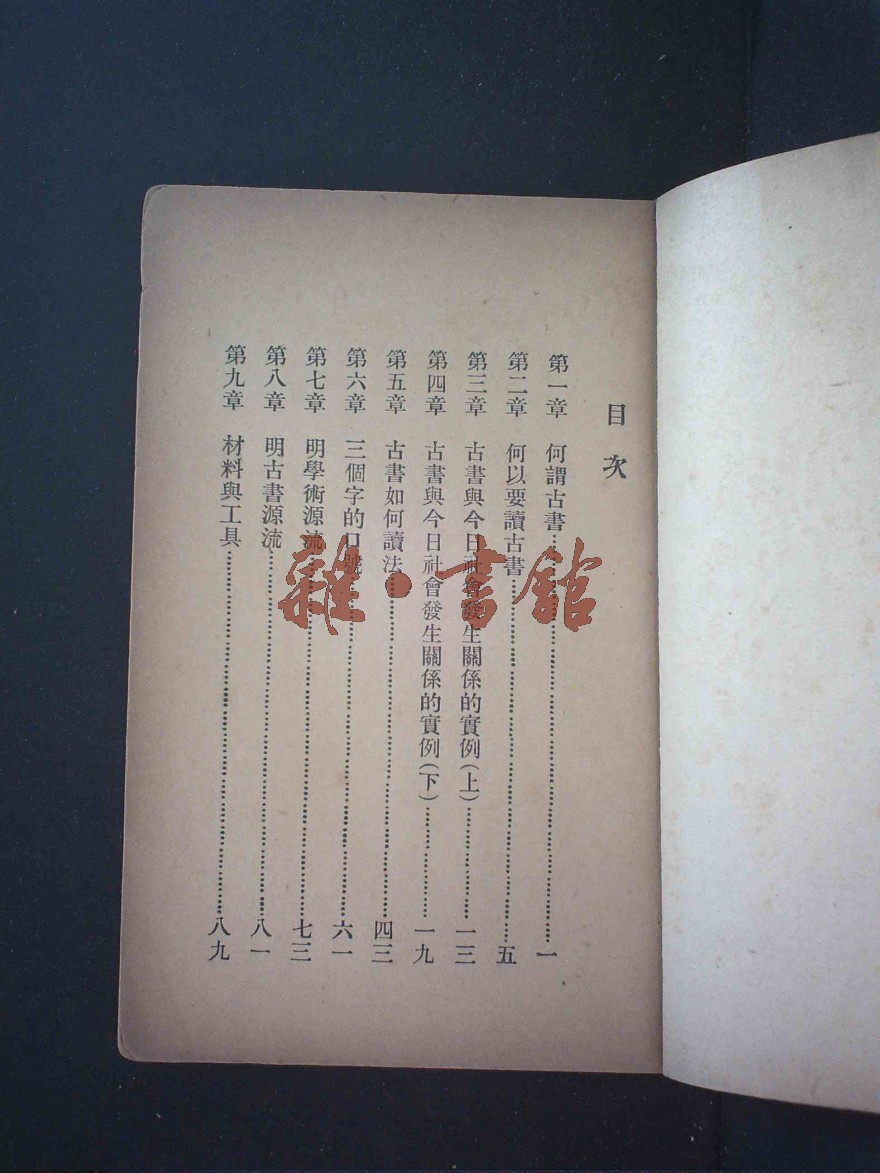 目次
第一章 何謂古書……一
第二章 何以要讀古書……五
第三章 古書與今日社會發生關係的實例(上)……一三
第四章 古書與今日社會發生關係的實例(下)……一九
第五章 古書如何讀法……四三
第六章 三個字的口號……六一
第七章 明學術源流……七三
第八章 明古書源流……八一
第九章 材料與工具……八九
雜·書館